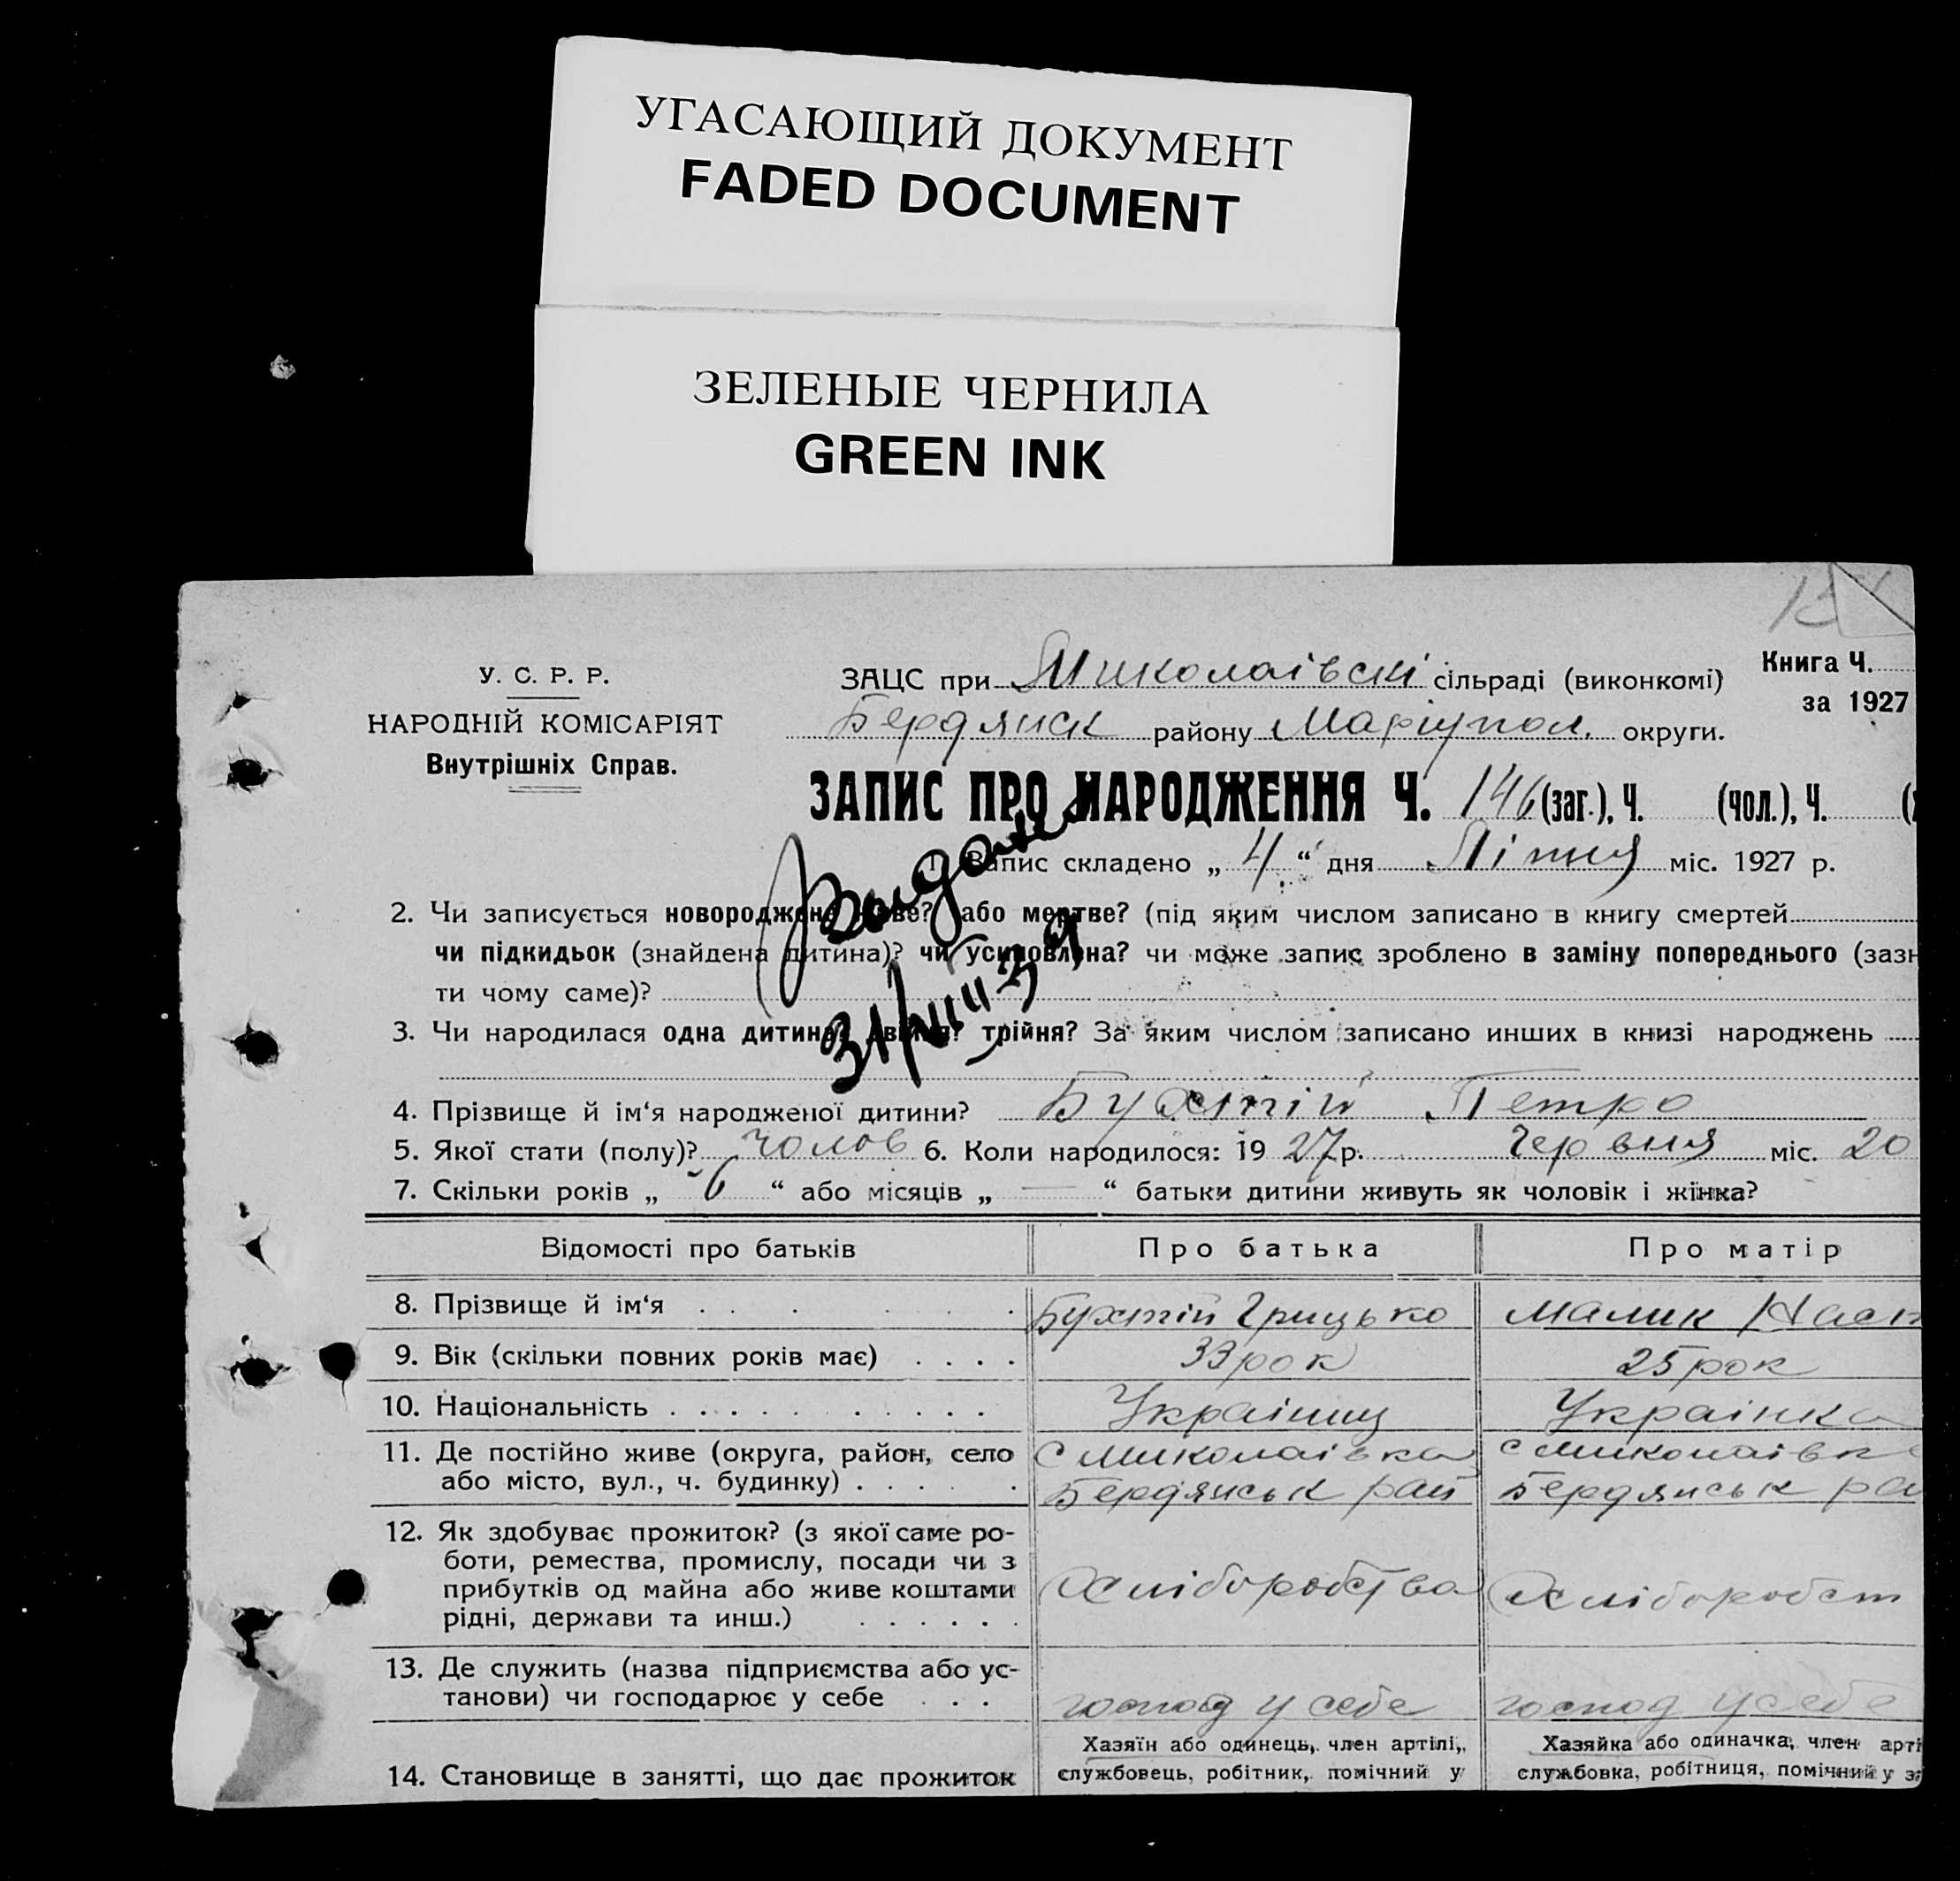 УГАСАЮЩИЙ ДОКУМЕНТ
FADED DOCUMENT
ЗЕЛЕНЫЕ ЧЕРНИЛА
GREEN INK
У. С. Р. Р.
НАРОДНІЙ КОМІСАРІЯТ
Внутрішніх Справ.
ЗАЦС при Миколаівскі сільраді (виконкомі)
Книга Ч.
за 1927
Бердянск району Маріупол. округи.
ЗАПИС ПРО НАРОДЖЕННЯ Ч. 146 (заг.), Ч. (чол.), Ч.
1. Запис складено „ 4 “ дня Літня міс. 1927 р.
2. Чи записується новороджене живе? або мертве? (під яким числом записано в книгу смертей
чи підкидьок (знайдена дитина)? чи усиновлена? чи може запис зроблено в заміну попереднього (зазн
ти чому саме)?
31/VIII 39
3. Чи народилася одна дитина? двійня? трійня? За яким числом записано инших в книзі народжень
4. Прізвище й ім‘я народженої дитини? Бухтій Петро
5. Якої стати (полу)? чолов 6. Коли народилося: 19 27 р. Червня міс. 20
7. Скільки років „ 6 “ або місяців „ — “ батьки дитини живуть як чоловік і жінка?
Відомості про батьків Про батька Про матір
8. Прізвище й ім‘я Бухтій Грицько Малик Наст
9. Вік (скільки повних років має) 33 рок 25 рок
10. Національність Украінец Украінка
11. Де постійно живе (округа, район, село с Миколаівка с Миколаівк
або місто, вул., ч. будинку) Бердянськ рай Бердянськ ра
12. Як здобуває прожиток? (з якої саме ро-
боти, ремества, промислу, посади чи з
прибутків од майна або живе коштами Хліборобства Хлiборобст
рідні, держави та инш.)
13. Де служить (назва підприємства або ус-
танови) чи господарює у себе господ у себе господ у себе
Хазяїн або одинець, член артілі, Хазяйка або одиначка, член арті
14. Становище в занятті, що дає прожиток службовець, робітник, помічний у службовка, робітниця, помічний у з